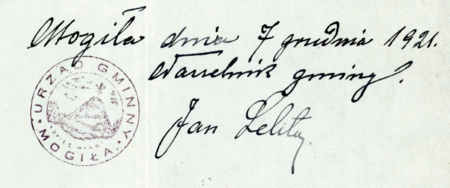 Mogiła dnia 7 grudnia 1921.
Naczelnik gminy.
URZĄD GMINNY
MOGIŁA.
Jan